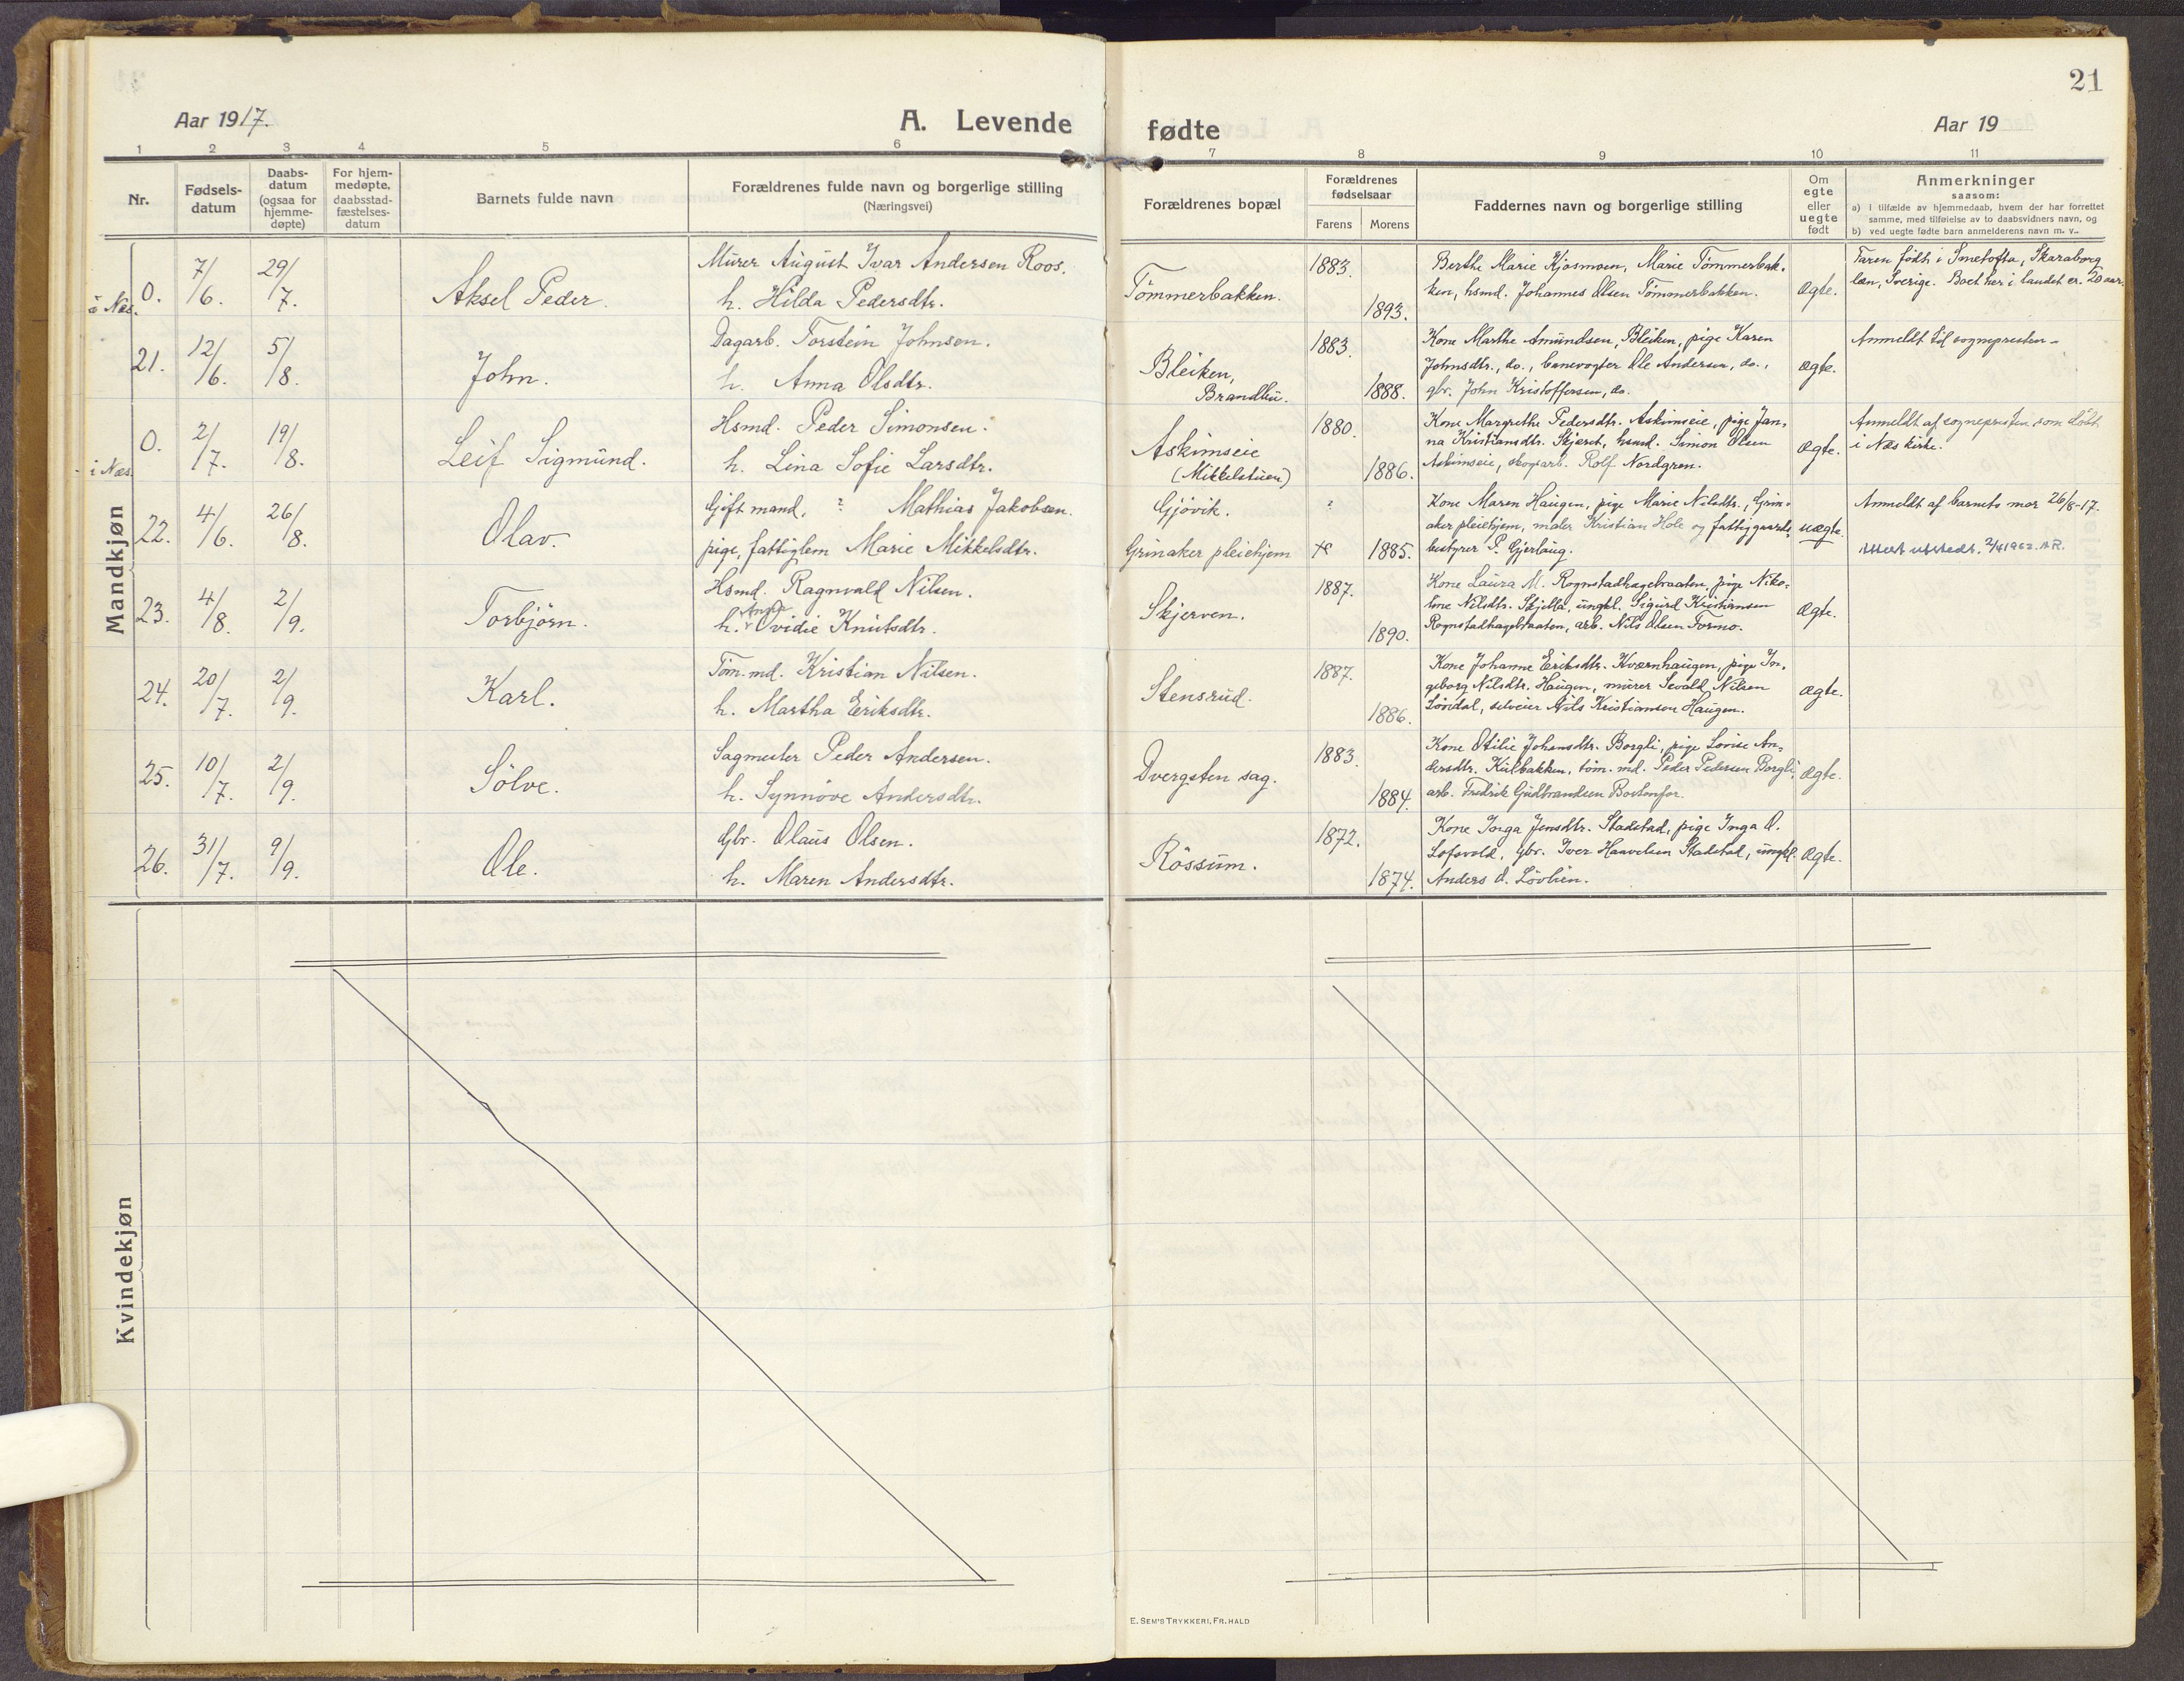 21
Aar 1917.
A. Levende
fødte
Aar 19
1 2 3 4 5 6
7 8 9 10 11
Nr.
Fødsels-
datum
Daabs-
datum
(ogsaa for
hjemme-
døpte)
For hjem-
medøpte,
daabsstad-
fæstelses-
datum
Barnets fulde navn
Forældrenes fulde navn og borgerlige stilling
(Næringsvei)
Forældrenes bopæl
Forældrenes
fødselsaar
Farens Morens
Faddernes navn og borgerlige stilling
Om
egte
eller
uegte
født
Anmerkninger
saasom:
a) I tilfælde av hjemmedaab, hvem der har forrettet
samme, med tilføielse av to daabsvidners navn, og
b) ved uegte fødte barn anmelderens navn m. v..
Mandkjøn
i Næs. 0. 7/6. 29/7. Aksel Peder.
Murer August Ivar Andersen Roos.
h. Hilda Pedersdtr.
Tömmerbakken.
1883.
1893.
Berthe Marie Kjosmoen, Marie Tömmerbak-
ken, hsmd. Johannes Olsen Tömmerbakken.
Ægte.
Faren født i Smetofta, Skaraborg
læn, Sverige. Boet her i landet ca. 20 aar.
21. 12/6. 5/8. John.
Dagarb. Torstein Johnsen.
h. Anna Olsdtr.
Bleiken,
Brandbu.
1883.
1888.
Kone Marthe Amundsen, Bleiken, pige Karen
Johnsdtr., do., banevogter Ole Andersen, do.,
gbr. John Kristoffersen, do.
Ægte.
Anmeldt til sognepresten -
i Næs. 0. 2/7. 19/8. Leif Sigmund.
Hsmd. Peder Simonsen.
h. Lina Sofie Larsdtr.
Askimseie
(Mikkelstuen)
1880.
1886.
Kone Margrethe Pedersdtr. Askimseie, pige Jan-
na Kristiansdtr. Skjeret, hsmd. Simon Olsen
Askimseie, skogsarb. Rolf Nordgren.
Ægte.
Anmeldt af sognepresten som døbt
i Næs kirke.
22. 4/6. 26/8. Olav.
Gift mand, ? Mathias Jakobsen.
pige, fattiglem Marie Mikkelsdtr.
Gjövik.
Grinaker pleiehjem
?
1885.
Kone Maren Haugen, pige Marie Nilsdtr., Grin-
aker pleiehjem, maler Kristian Hole og fattiggaards-
bestyrer P. Gjerlaug.
uægte.
Anmeldt af barnets mor 26/8-17.
Attest utstedt. 2/4 1962. AR.
23. 4/8. 2/9. Torbjörn.
Hsmd. Ragnvald Nilsen.
h. Ovidie Knutsdtr.
Skjerven.
1887.
1890.
Kone Laura M. Rognstadhagebraaten, pige Niko-
line Nilsdtr. Skjelbæ, ungkl. Sigurd Kristiansen
Rognstadhagebraaten, arb. Nils Olsen Formo.
Ægte.
24. 20/7. 2/9. Karl.
Töm.md. Kristian Nilsen.
h. Martha Eriksdtr.
Stensrud.
1887.
1886.
Kone Johanne Eriksdtr. Kværnhaugen, pige In-
geborg Nilsdtr. Haugen, murer Sevald Nilsen
Löndal, selveier Nils Kristiansen Haugen.
Ægte.
25. 10/7. 2/9. Sölve.
Sagmester Peder Andersen.
h. Synnöve Andersdtr.
Dvergsten sag.
1883.
1884.
Kone Otilie Johansdtr. Borgli, pige Lovise An-
dersdtr. Kulbakken, töm.md. Peder Pedersen Borgli,
arb. Fredrik Gudbrandsen
Ægte.
26. 31/7. 9/9. Ole.
Gbr. Olaus Olsen.
h. Maren Andersdtr.
Rössum.
1872.
1874.
Kone Inga Jensdtr. Stadstad, pige Inga O.
Lofsvold, gbr. Iver Haavelsen Stadstad, ungkl.
Anders O. Lövlien.
Ægte.
Kvindekjøn
E. SEM'S TRYKKERI, FR.HALD